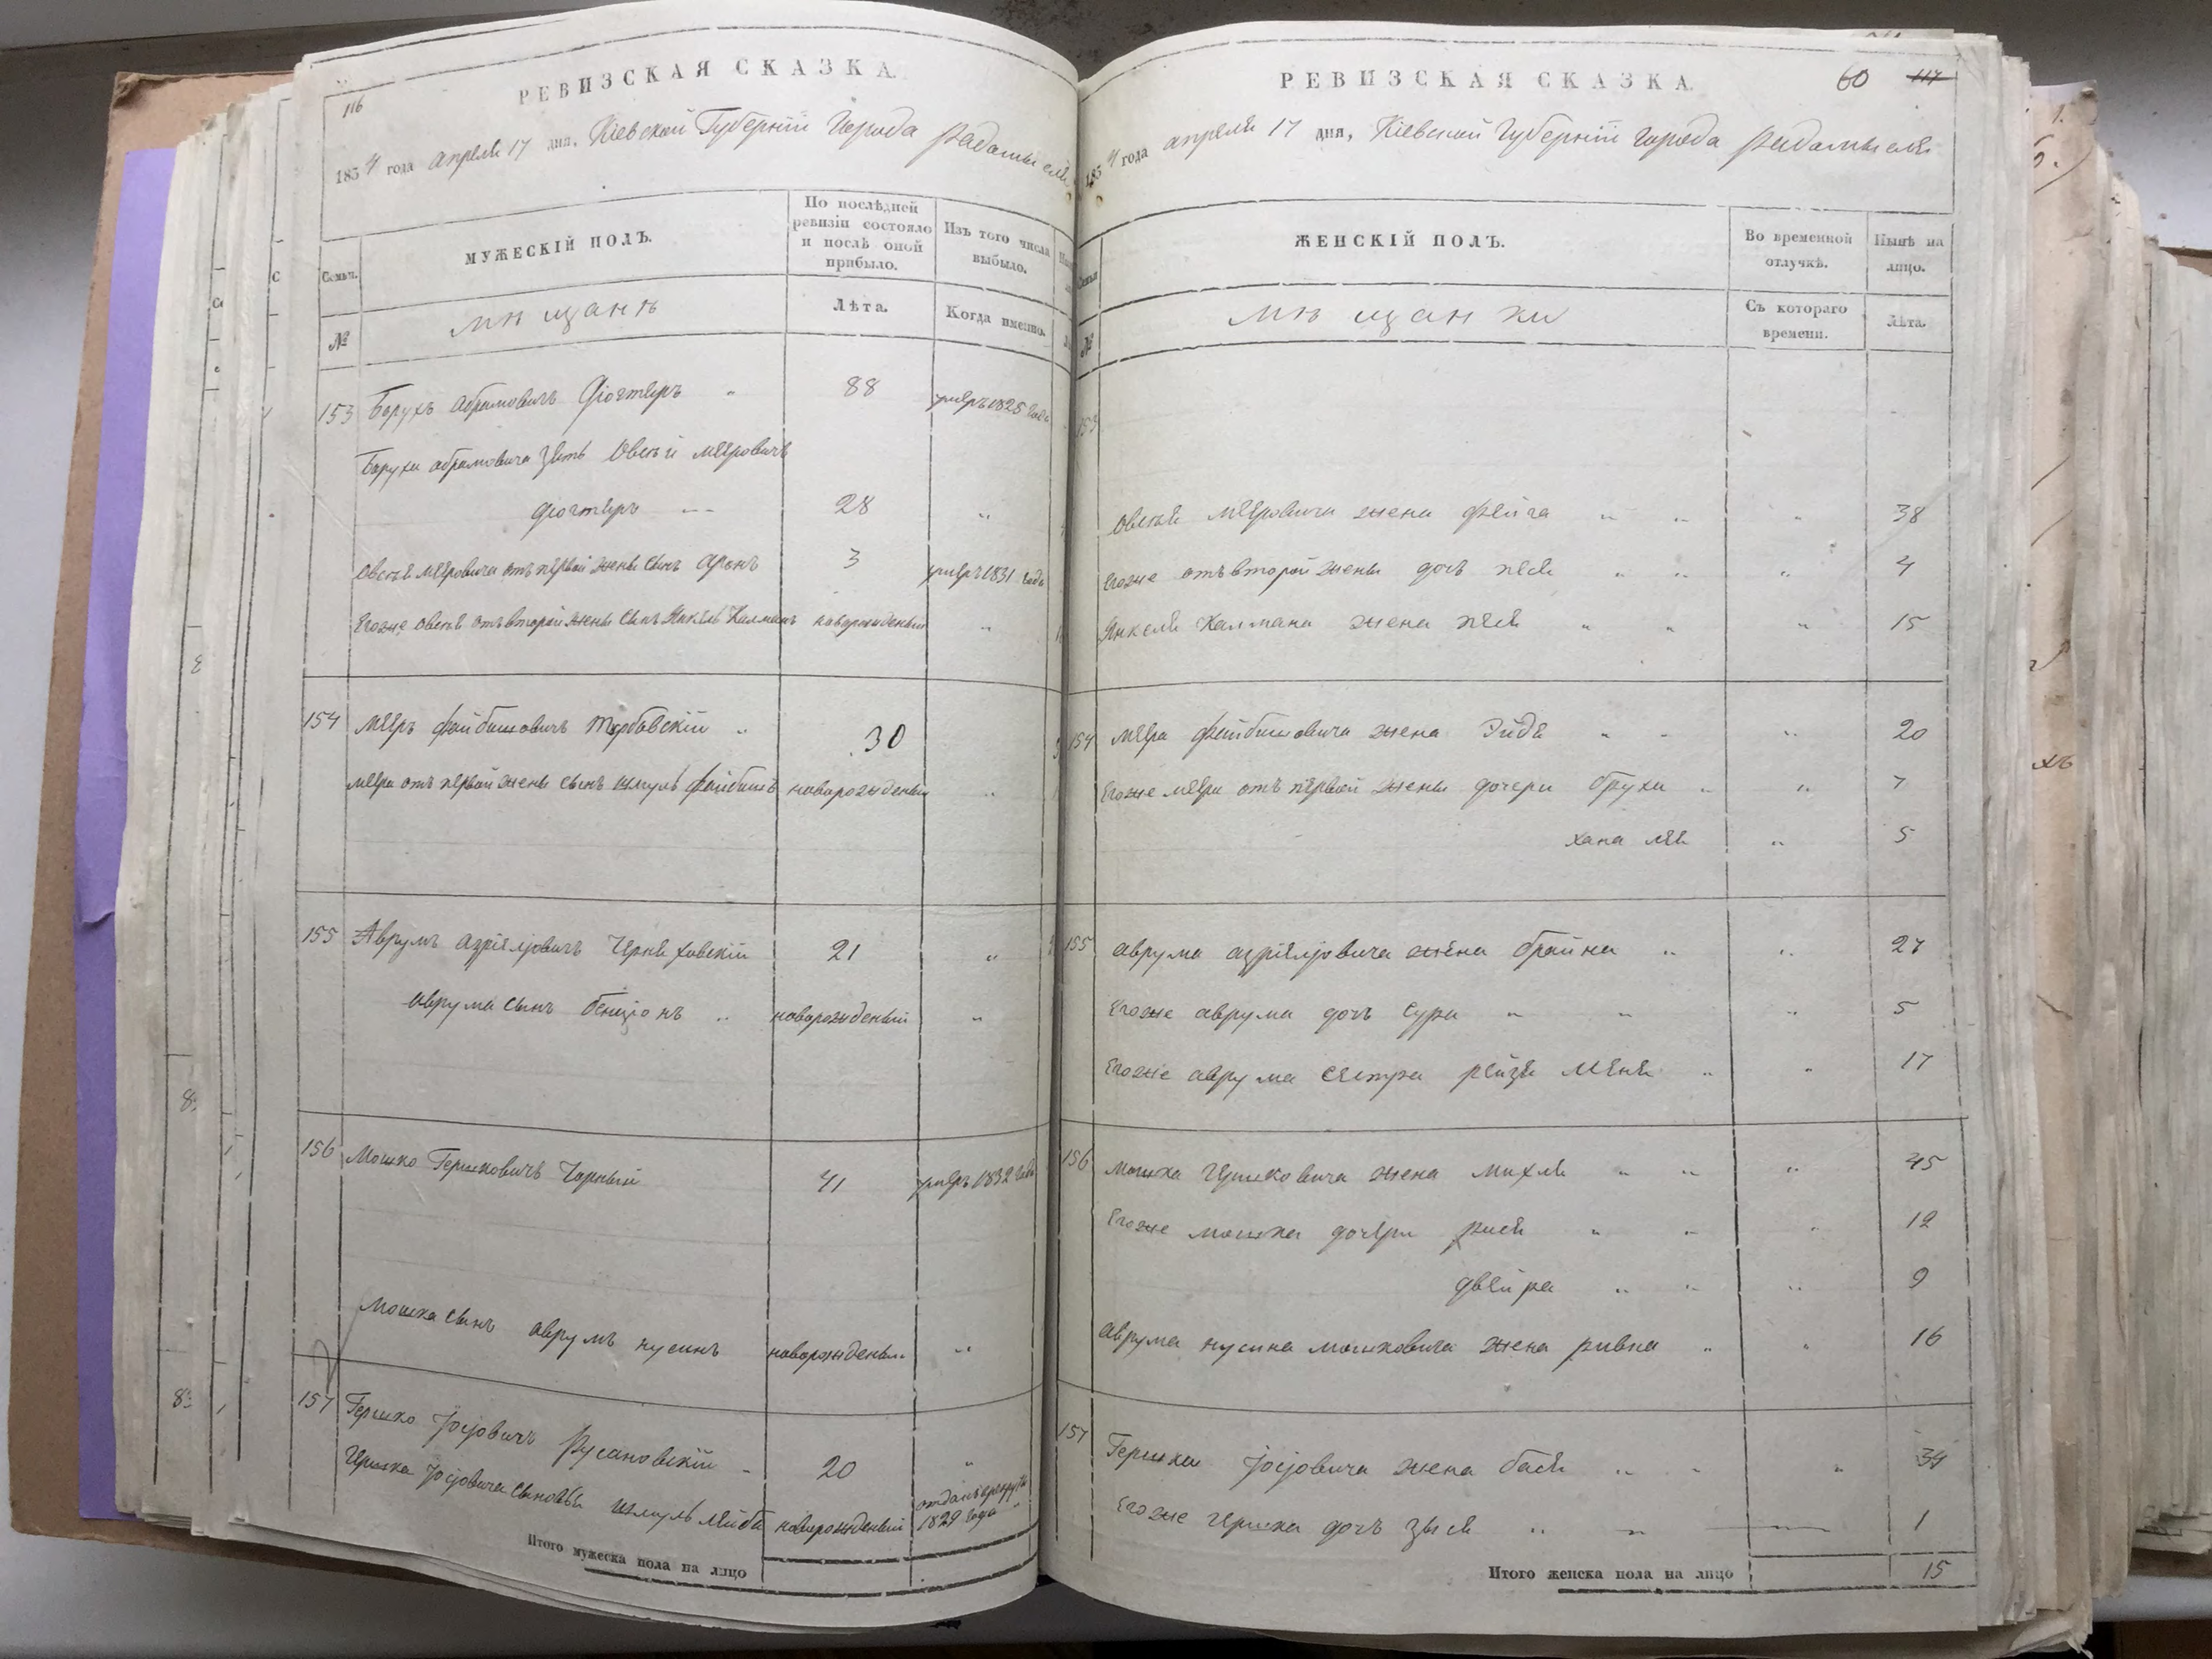 116
РЕВИЗСКАЯ СКАЗКА
1834 года апреля 17 дня, Кіевской Губерніи Города Радомысля
Семьи.
МУЖЕСКІЙ ПОЛЪ.
По послѣдней ревизіи состояло и послѣ оной прибыло.
Изъ того числа выбыло.
№
мѣщанѣ
Лѣта.
Когда именно.
153 Борухъ Абрамовичъ Фіогтеръ 88 умеръ 1825 года
Боруха абрамовича зять Овсѣй Меяровичъ
фіогтеръ 28
Овсѣя Меяровича отъ первой жены сынъ Аронъ 3 умеръ 1831 года
Егоже Овсѣя отъ второй жены сынъ Янкель Калманъ новорожденый
154 Меяръ Файбишовичъ Торбовскій 30
Меяра отъ первой жены сынъ Шмуль Файбишъ новорожденый
155 Аврумъ Азріяліовичъ Черняховскій 21
аврума сынъ бенціонъ новорожденый
156 Мошко Гершковичъ Чорный 41 умеръ 1832 года
Мошка сынъ аврумъ нусинъ новорожденый
157 Гершко Іосіовичъ Русановскій 20
Гершка Іосіовича сыновья Шмуль Лейба новорожденый 1829 года
Итого мужеска пола на лицо
РЕВИЗСКАЯ СКАЗКА
60 117
1834 года апреля 17 дня, Кіевской Губерніи города Радомысля
ЖЕНСКІЙ ПОЛЪ.
Во временной отлучкѣ.
Нынѣ на лицо.
№
мѣщанки
Съ котораго времени.
Лѣта.
153
Овсѣя Меяровича жена Фейга 38
Егоже отъ второй жены дочь песя 4
Янкеля Калмана жена песя 15
154 Меяра Файбишовича жена Эйдя 20
Егоже Меяра отъ первой жены дочери бруха 7
хана лея 5
155 аврума азріяліовича жена брайна 27
Егоже аврума дочь сура 5
Егоже аврума сестра рейзя Меня 17
156 Мошка Гершковича жена михля 45
Егоже мошка дочери рися 12
двейра 9
аврума нусина мошковича жена ривка 16
157 Гершка Іосіовича жена бася 34
Егоже гершка дочь зыся 1
Итого женска пола на лицо 15